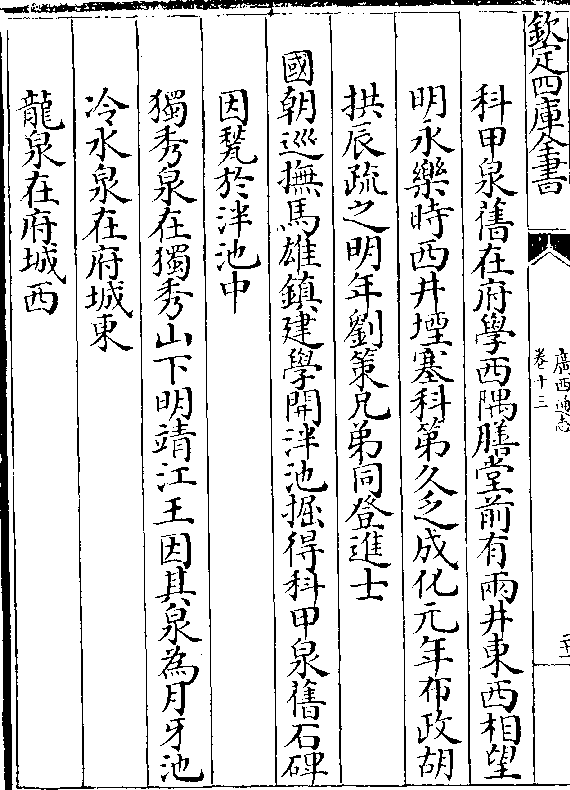 欽定四庫全書
廣西通志
卷十三
二十一
科甲泉舊在府學西隅膳堂前有兩井東西相望
明永樂時西井堙塞科第久乏成化元年布政胡
拱辰疏之明年劉策兄弟同登進士
國朝巡撫馬雄鎮建學開泮池掘得科甲泉舊石碑
因甃於泮池中
獨秀泉在獨秀山下明靖江王因其泉為月牙池
冷水泉在府城東
龍泉在府城西